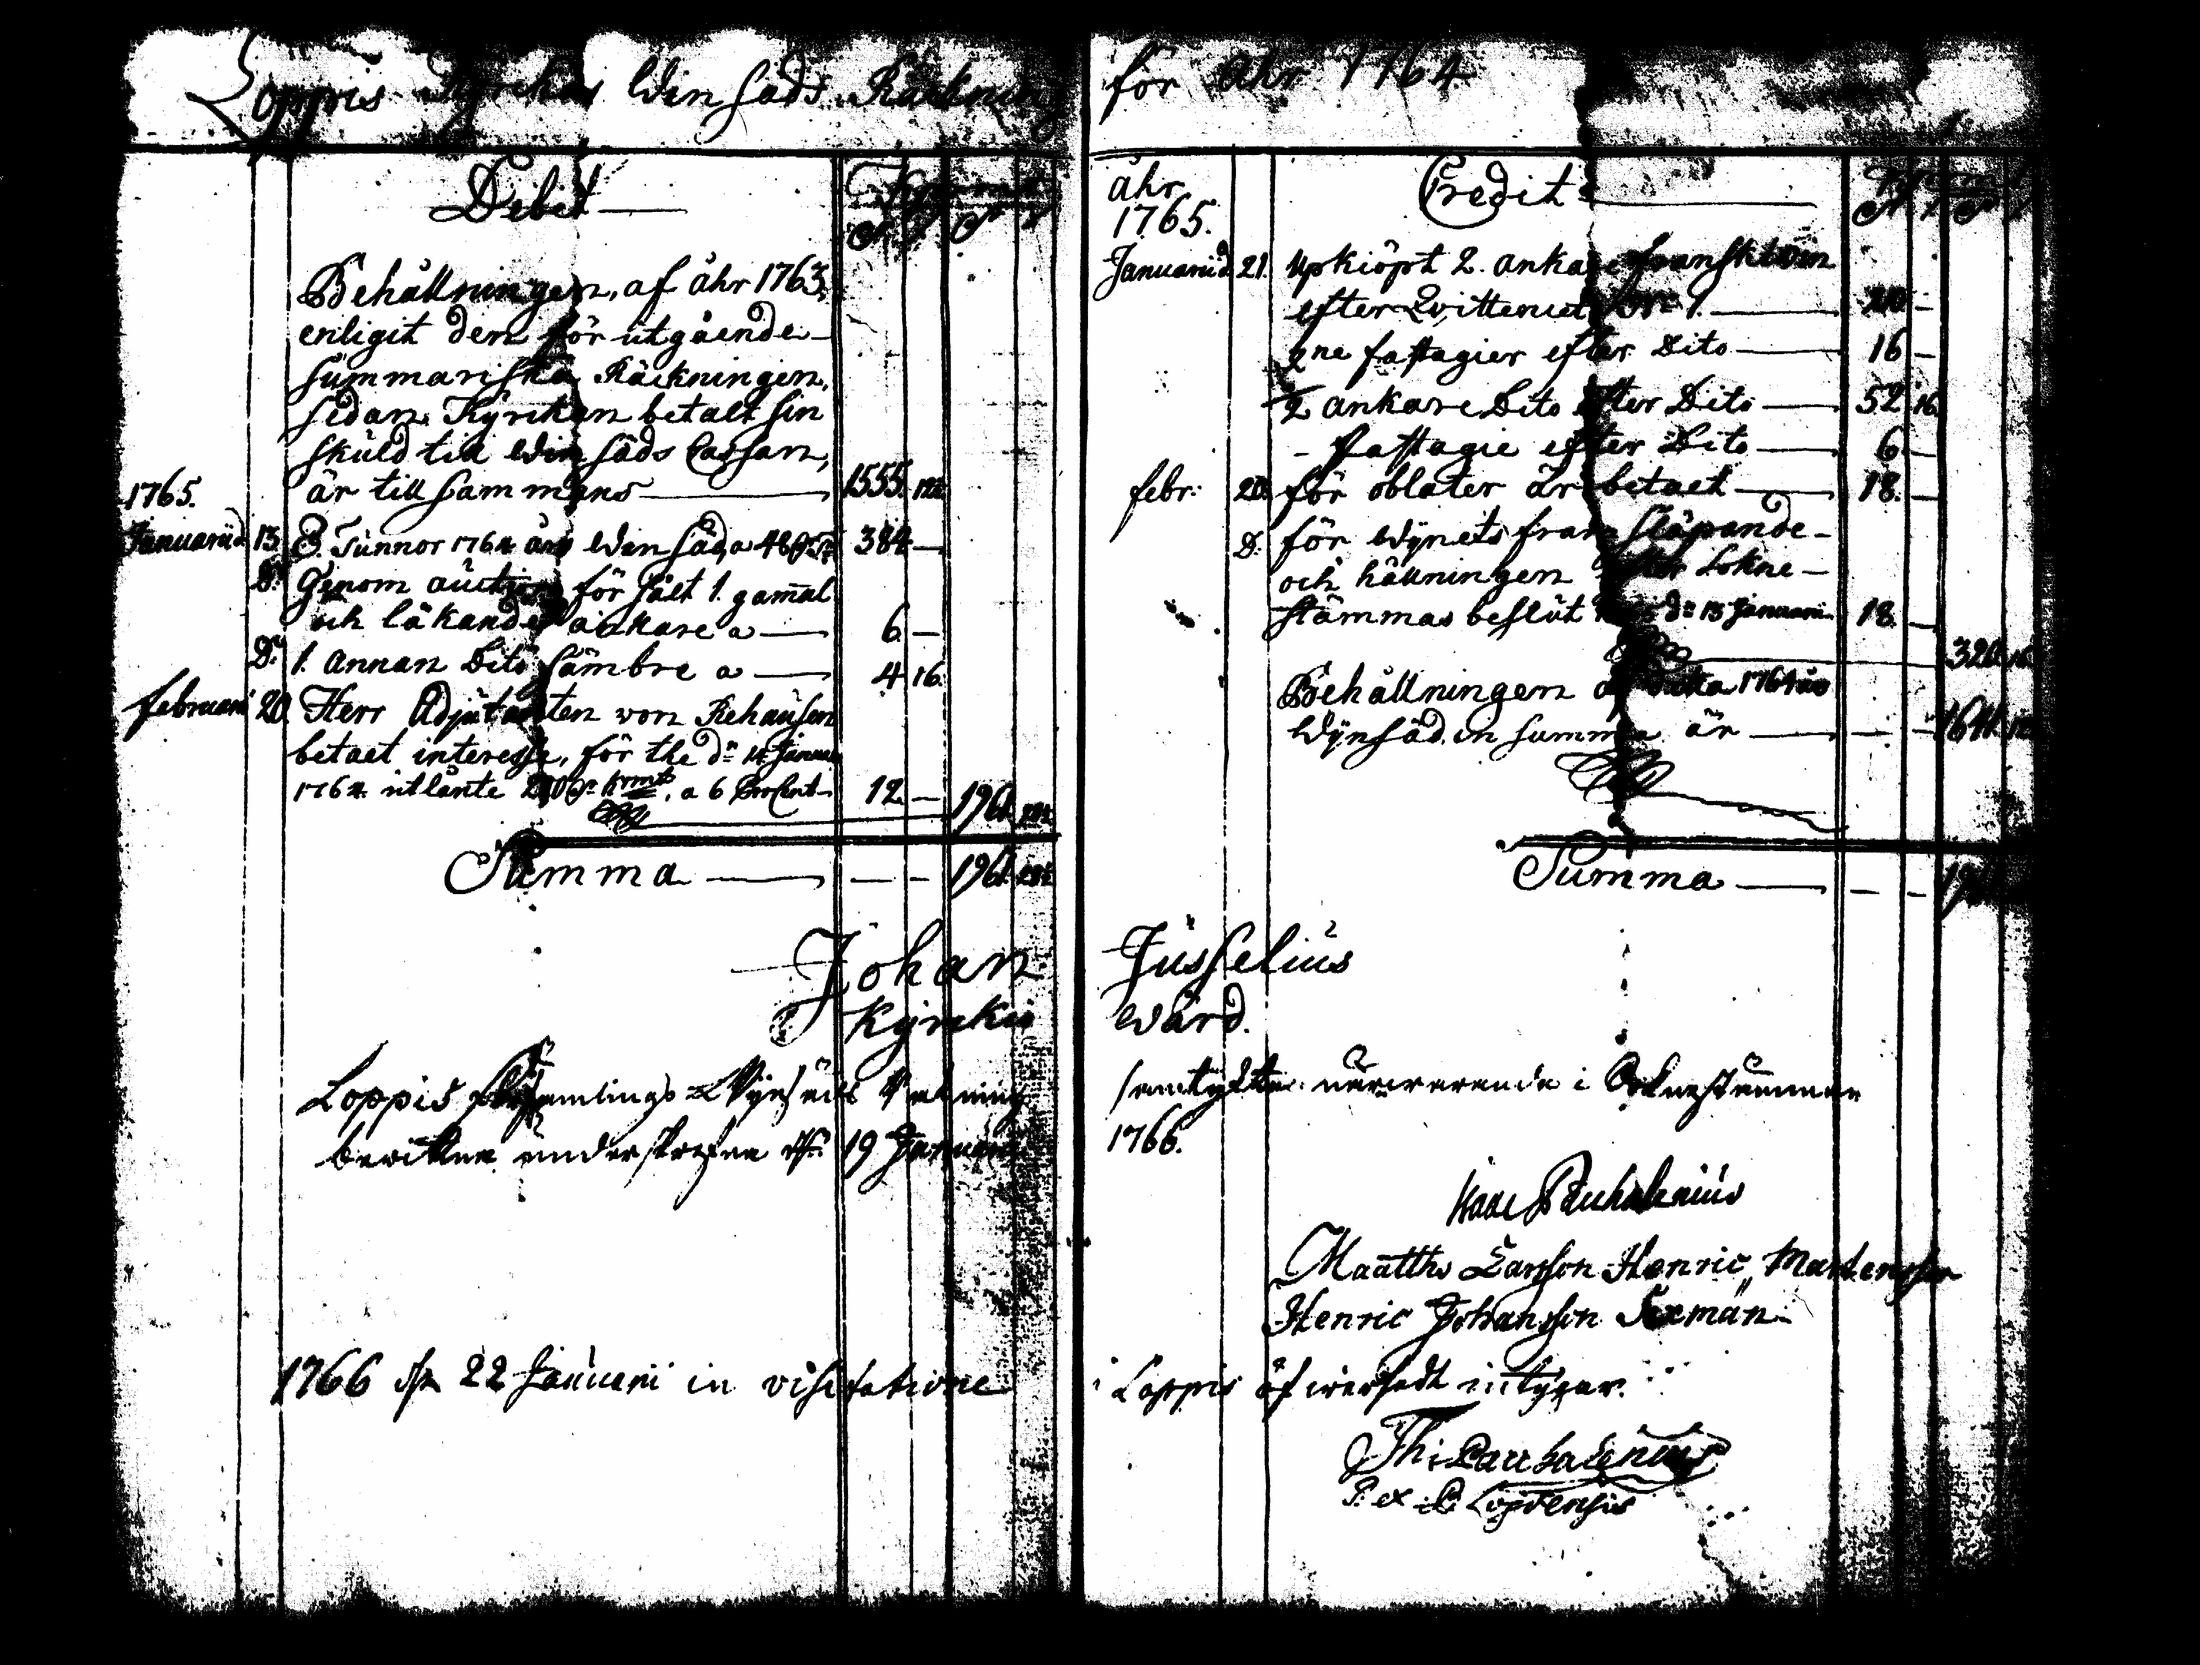 Loppis Kyrckas Winsäds Räckning för åhr 1764
Debit
Behållningen, af åhr 1763,
enligit den för utgående
summariska Räckningen,
sedan Kyrckan betalt sin
skuld till Winsäds Cassan,
är tillsammans 1555.
1765.
Januarii d. 15. 8. Tunnor 1764 års Winsäd, a 384 —
D:o Genom auction försålt 1. gamal
och läkande ankare a — 6 —
D:o 1. annan Dito sämbre a — 4 16.
februarii 20. Herr Adjutanten von Rehausen
betalt interesse, för the d:n 14 Januarii
1764 utlånte 200 a 6 ProCent 12. — 1961.
Summa — 1961.
åhr
1765.
Credit
Januarii d. 21. Upkiöpt 2. ankare franskt win
efter Qvittencet N:o 1. —
2ne fastagier efter Dito — 16 —
2 ankare Dito efter Dito — 52 16.
- fastagie efter Dito — 6 —
febr: 20. för oblater är betalt — 18. —
D. för Wynets fram släpande
och hållningen efter Sokne-
stämmas beslut d:n 13 Januarii 18. —
320. 16
Behållningen af detta 1764 års
Wynsäd in summa är —
Summa —
Johan Jusselius
Kyrckio Wärd.
Loppis Wynsäds Räkning samtyckte närwarande i Soknestämman
19 Januarii 1766.
Matths Larsson Henric Mårtensson
Henric Johansson Sexmän
1766 d. 22 Januarii in visitatione i Loppis öfwersedt
P. et P. Loppensis